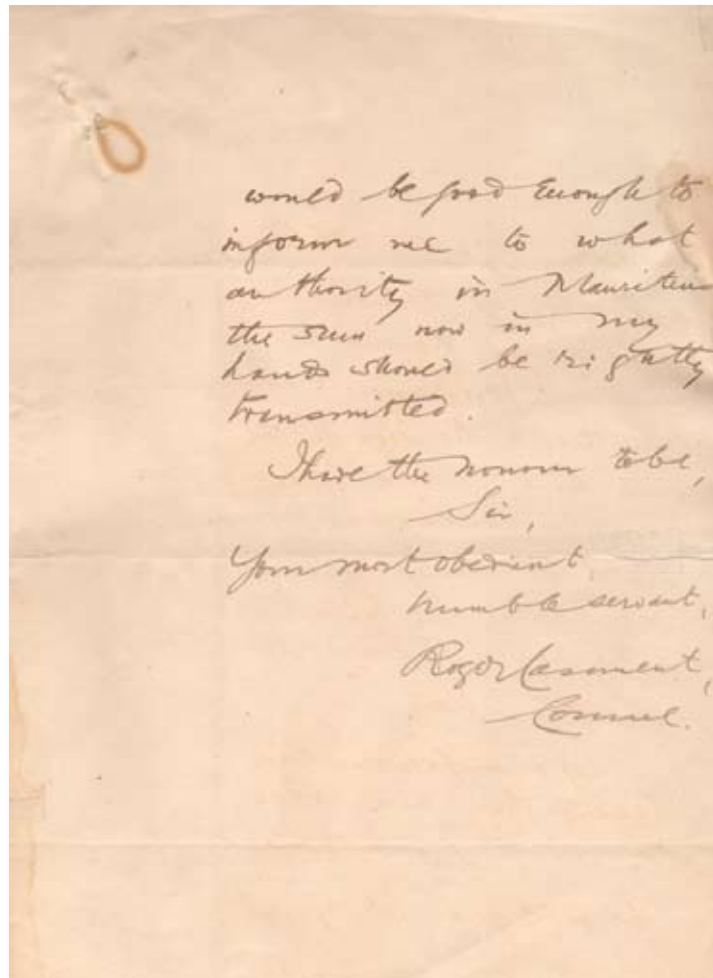 would be good enough to
inform me to what
authority in Mauritius
the sum now in my
hands should be rightly
transmitted.
I have the honour to be,
Sir,
Your most obedient,
humble servant,
Roger Casement,
Consul.